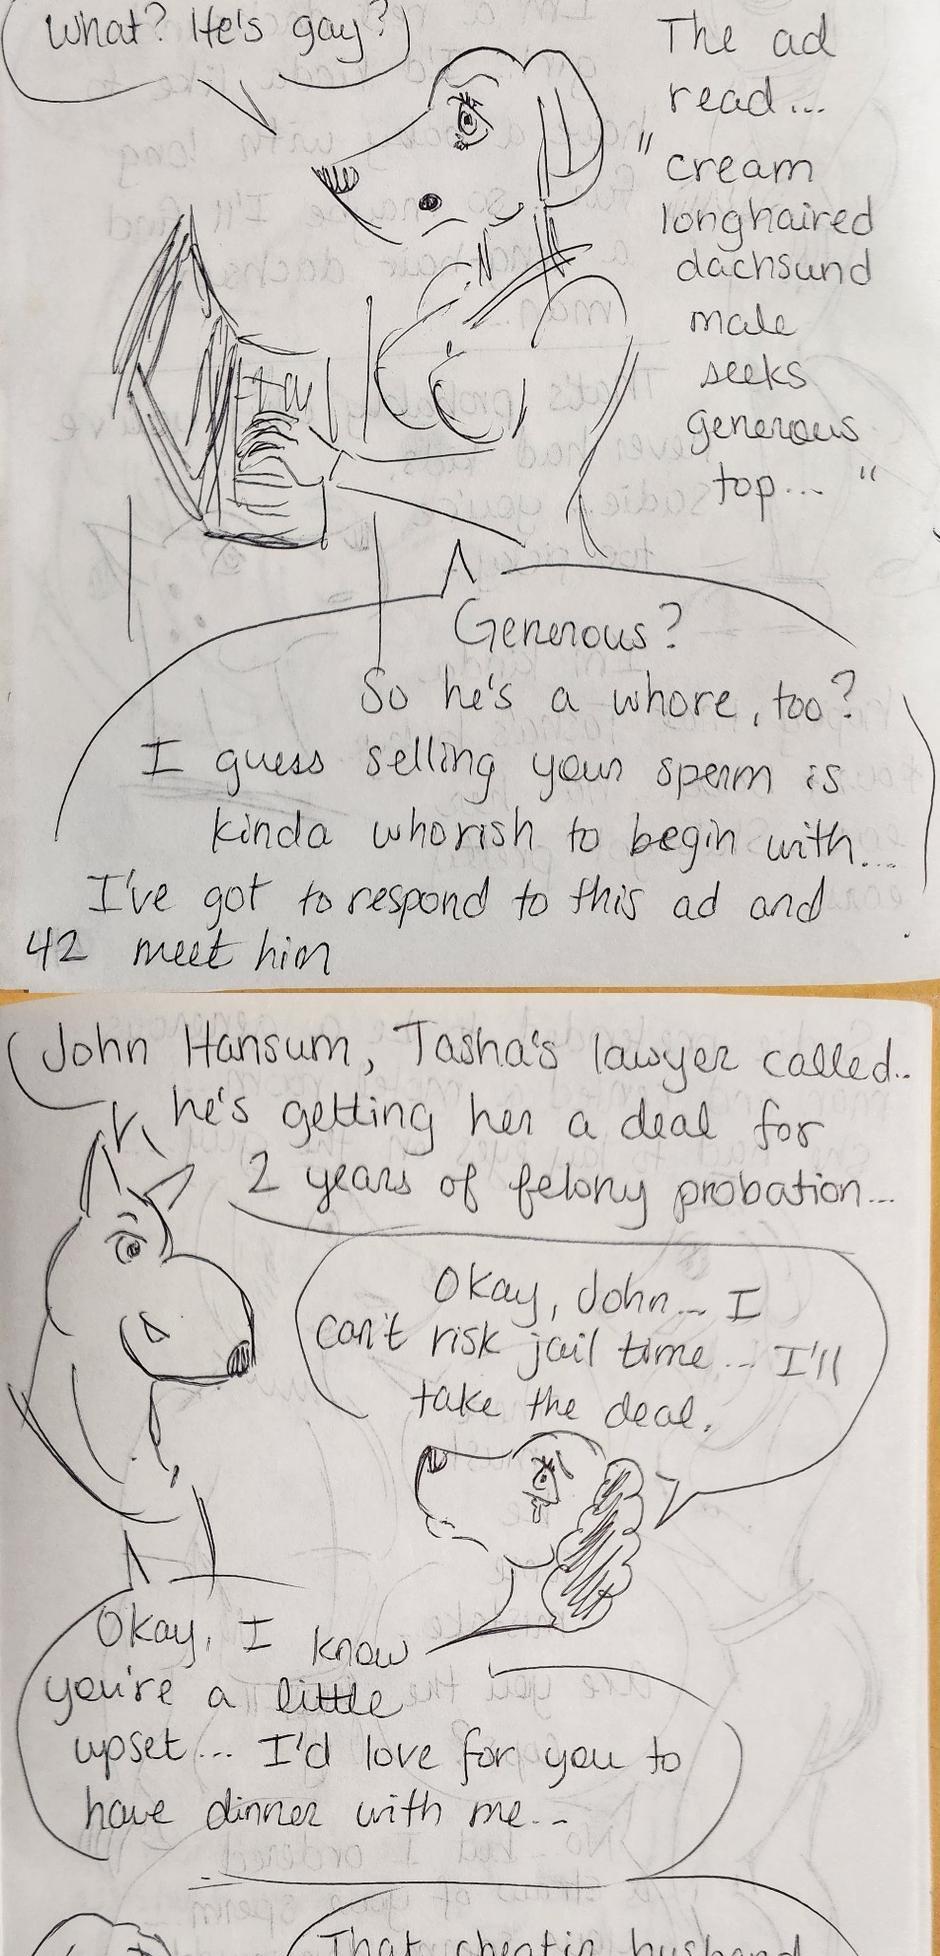 What? He's gay?
The ad
read...
"cream
longhaired
dachsund
male
seeks
generous
top... "
Generous?
So he's a whore, too?
I guess selling your sperm is
kinda whorish to begin with...
I've got to respond to this ad and
meet him
42
John Hansum, Tasha's lawyer called..
he's getting her a deal for
2 years of felony probation...
Okay, John... I
can't risk jail time... I'll
take the deal.
Okay, I know
you're a little
upset... I'd love for you to
have dinner with me...
That cheatin husband